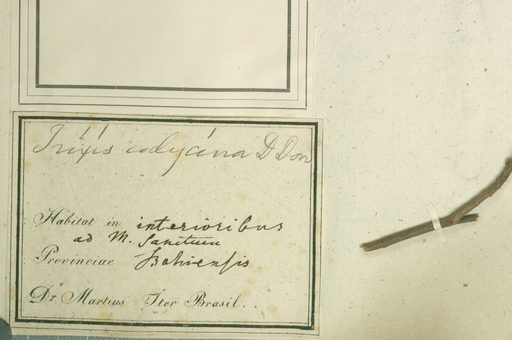 Trixis calycina D Don
Habitat in interioribus
ad M. Sanctum
Provinciae Bahiensis
Dr Martius Iter Brasil.